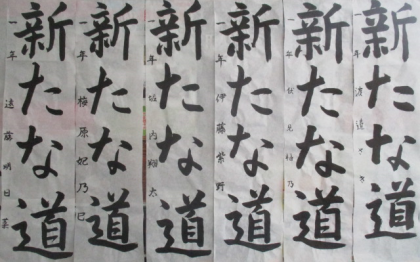 新たな道
一年
新たな道
一年 伏見
新たな道
一年 伊藤紫野
新たな道
一年 坂内翔太
新たな道
一年 梅原妃乃
新たな道
一年 遠藤明日